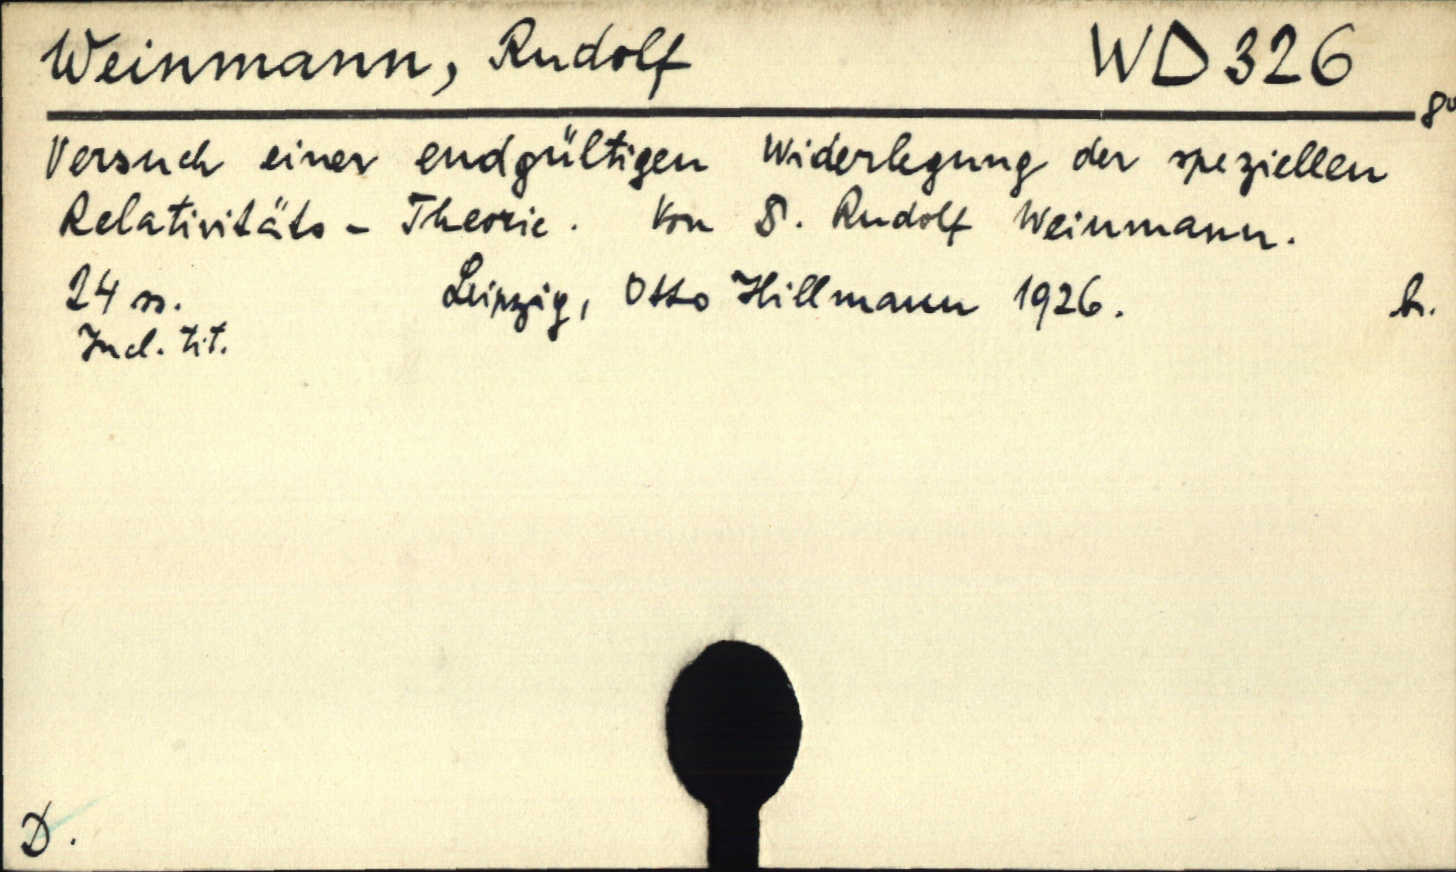 Weinmann, Rudolf WD 326
8°
Versuch einer endgültigen Widerlegung der speziellen
Relativitäts - Theorie. Von S. Rudolf Weinmann.
24 ss. Leipzig, Otto Hillmann 1926. h.
Incl. tit.
D.